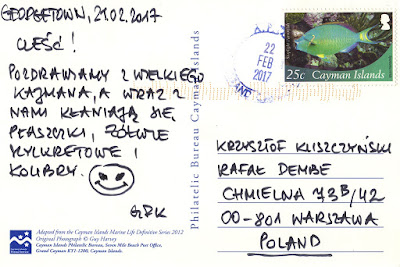 GEORGETOWN, 21.02.2017
CZEŚĆ!
POZDRAWIAMY Z WIELKIEGO
KAJMANA, A WRAZ Z
NAMI KŁANIAJĄ SIĘ
PŁASZCZKI, ŻÓŁWIE
SZYLKRETOWE I
KOLIBRY.
GRK
Adapted from the Cayman Islands Marine Life Definitive Series 2012
Original Photograph © Guy Harvey
Cayman Islands Philatelic Bureau, Seven Mile Beach Post Office,
Grand Cayman KY1-1200, Cayman Islands.
Philatelic Bureau Cayman Islands
22
FEB
2017
25c Cayman Islands
KRZYSZTOF KLISZCZYŃSKI
RAFAŁ DEMBE
CHMIELNA 73B/42
00-801 WARSZAWA
POLAND